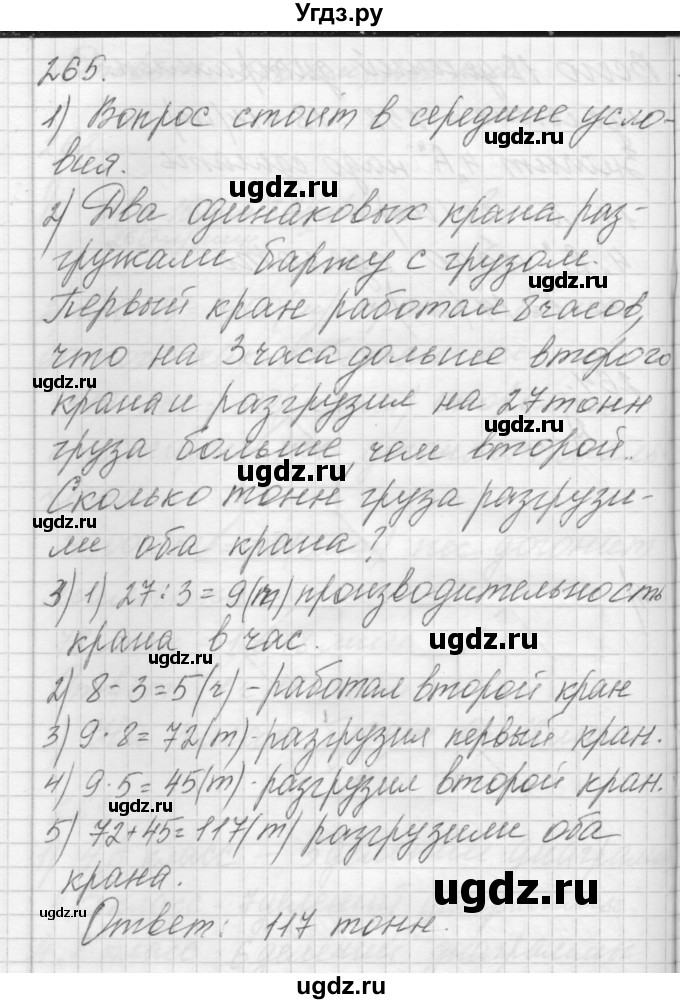 Угдз.ру
265.
1) Вопрос стоит в середине усло-
вия.
ugdz.ru
2) Два одинаковых крана раз-
гружали баржу с грузом.
ugdz.ru
Первый кран работал 8 часов,
что на 3 часа дольше второго
ugdz.ru
крана и разгрузил на 27 тонн
груза больше, чем второй.
ugdz.ru
Сколько тонн груза разгрузи-
ugdz.ru
ли оба крана?
3) 1) 27 : 3 = 9 (т) производительность
крана в час.
ugdz.ru
2) 8 - 3 = 5 (ч) - работал второй кран
3) 9 · 8 = 72 (т) - разгрузил первый кран.
4) 9 · 5 = 45 (т) - разгрузил второй кран.
ugdz.ru
5) 72 + 45 = 117 (т) разгрузили оба
крана.
ugdz.ru
ugdz.ru
Ответ: 117 тонн.
ugdz.ru